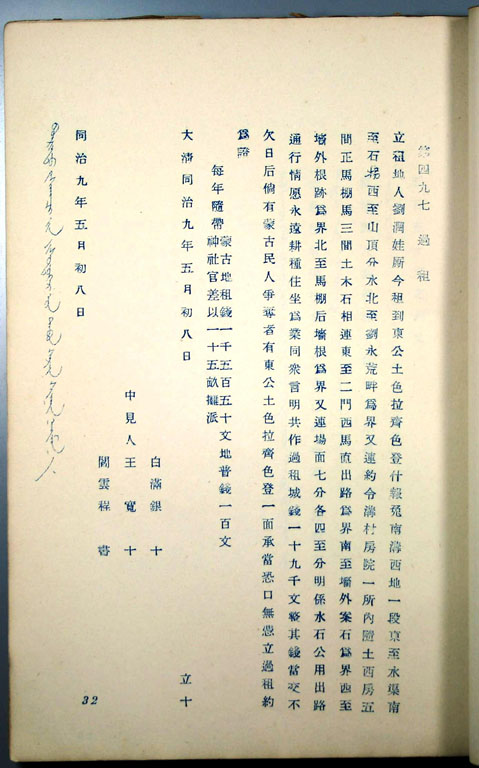 第四九七 過租
立租地人劉潤娃所今租到東公土色拉齊色登什報兎南溝西地一段東至水渠南
至石塲西至山頂分水北至劉永荒畔爲界又連約令溝村房院一所內隨土西房五
間正馬棚馬三間土木石相連東至二門西馬直出路爲界南至墻外案石爲界西至
墻外根跡爲界北至馬棚后墻根爲界又連塲面七分各四至分明係水石公用出路
通行情愿永遠耕種住坐爲業同衆言明共作過租城錢一十九千文整其錢當交不
欠日后倘有蒙古民人爭奪者有東公土色拉齊色登一面承當恐口無憑立過租約
爲證
每年隨帶蒙古地租錢一千五百五十文地普錢一百文
神社官差以一十五畝攤派
大淸同治九年五月初八日 立十
白滿銀 十
中見人王寬 十
閻雲程 書
同治九年五月初八日
32